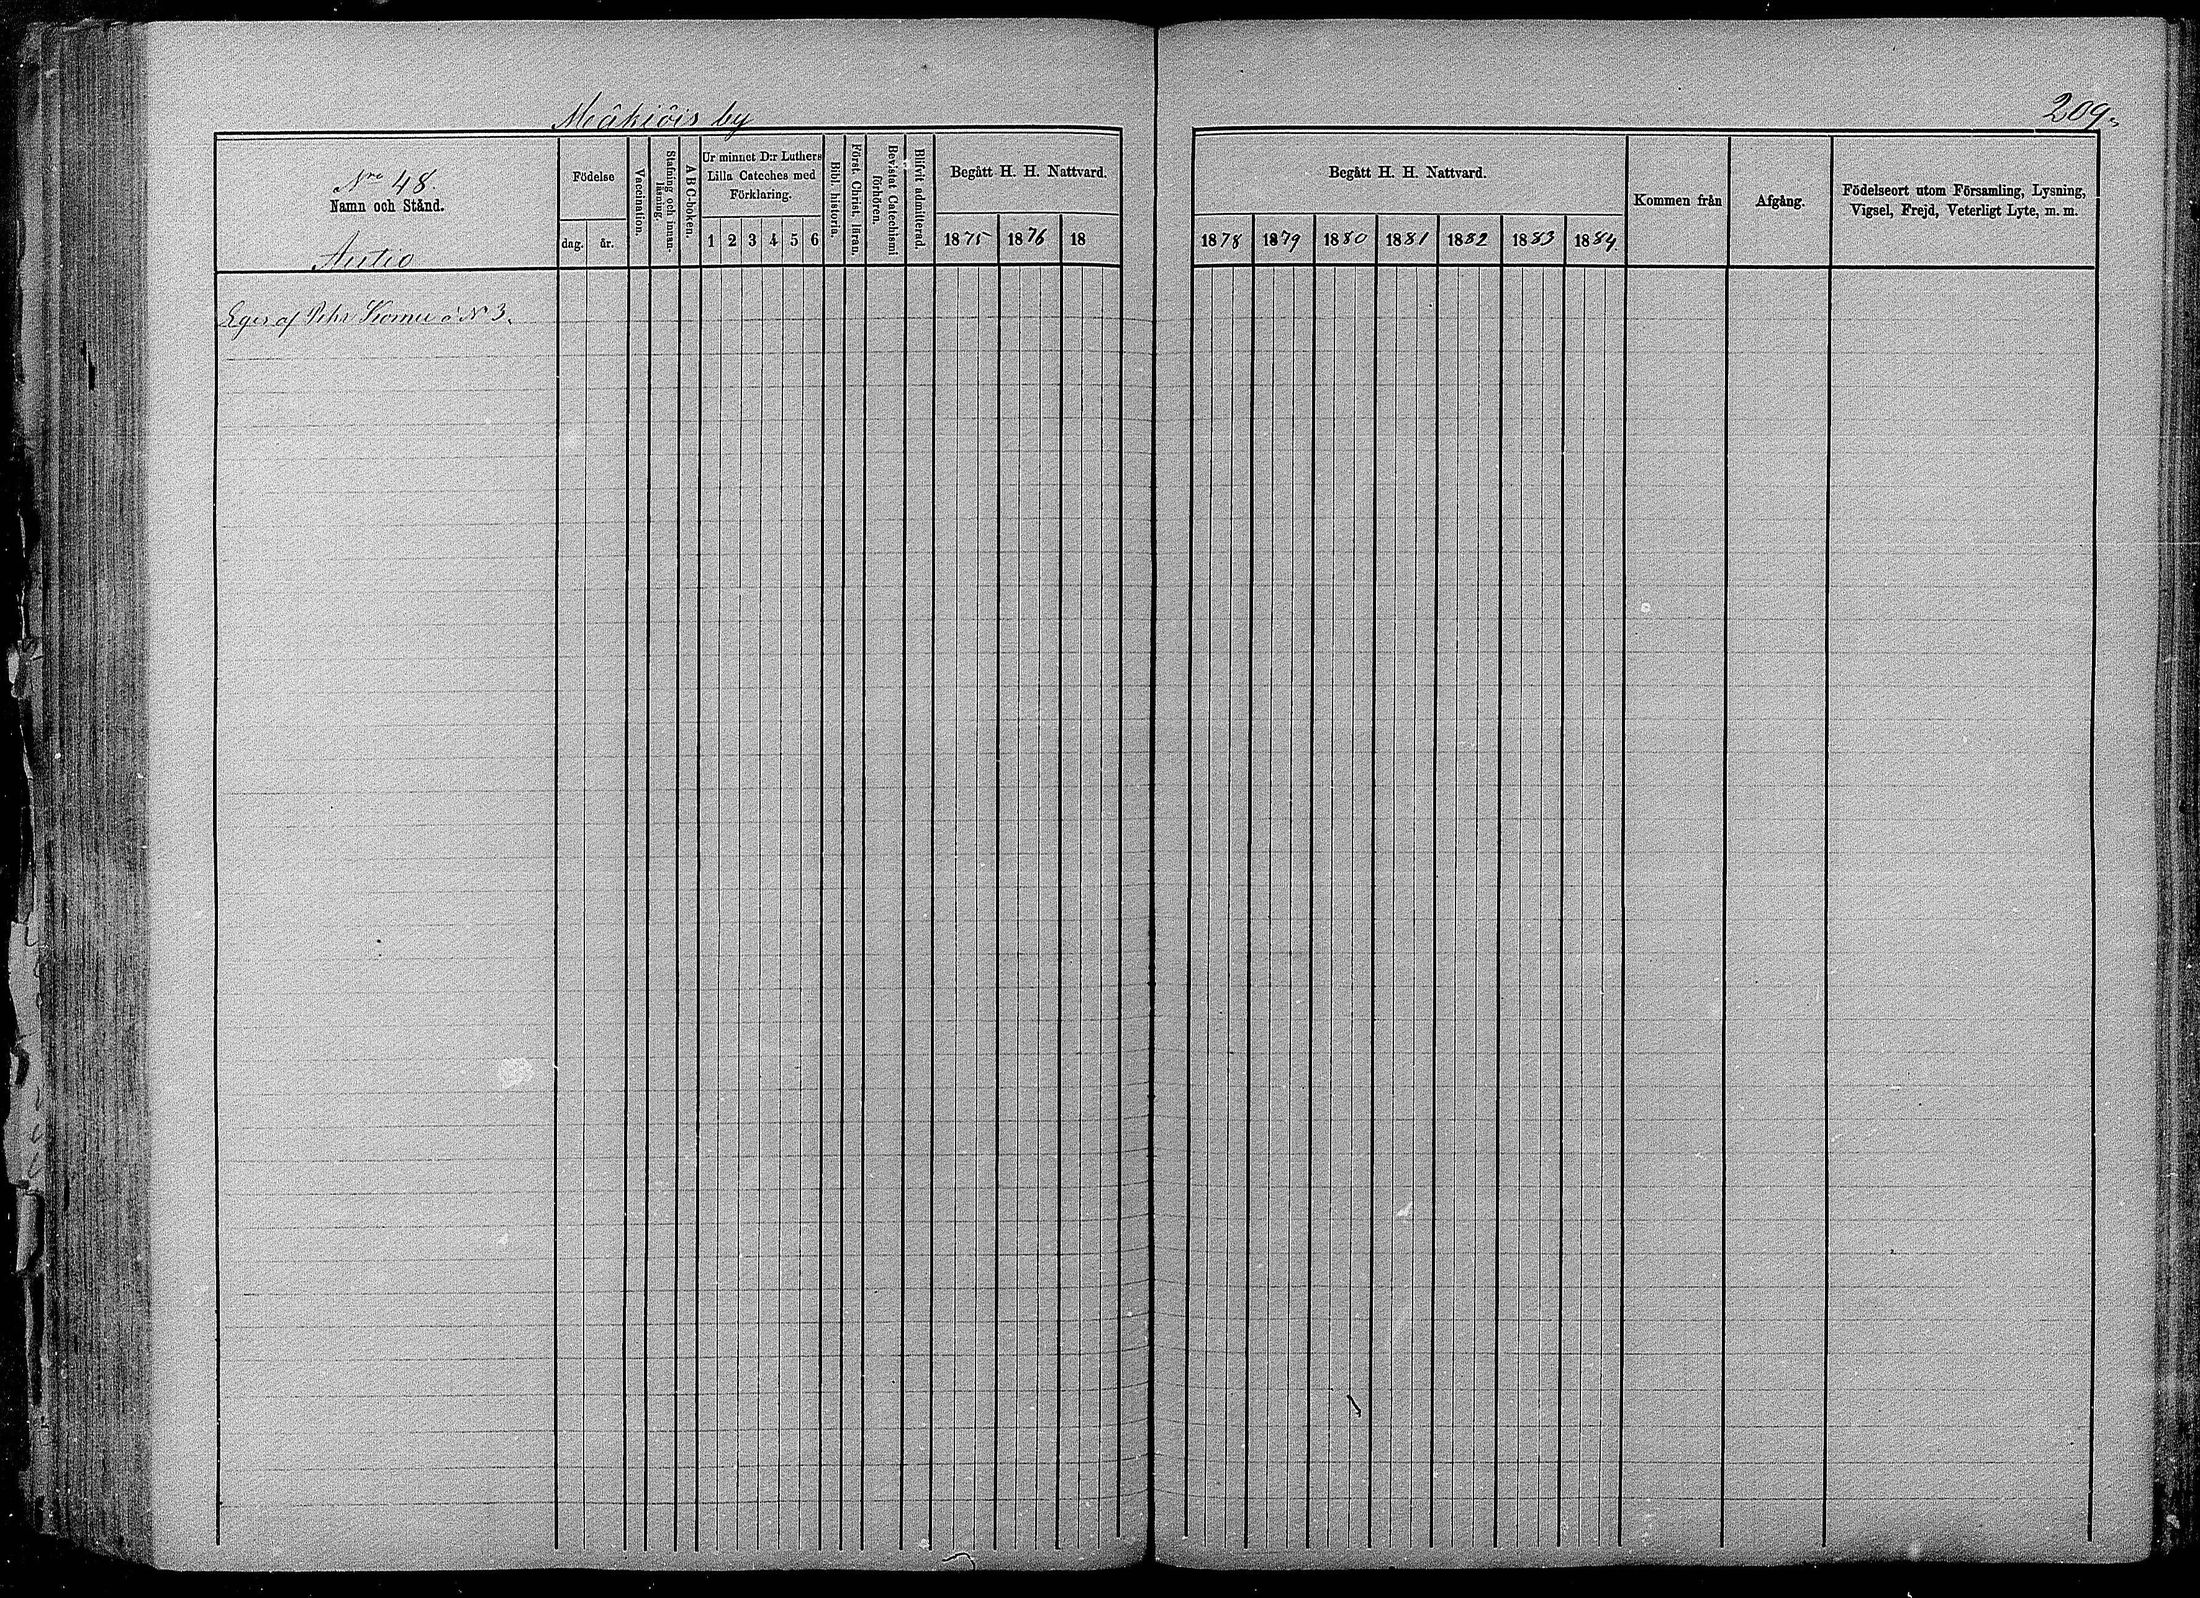 Meähiöis by
209.
Nro 48.
Namn och Stånd.
Autio
Födelse
dag.
år.
Vaccination.
Stafning och innan-
läsning.
ABC-boken.
Ur minnet D:r Luthers
Lilla Cateches med
Förklaring.
1 2 3 4 5 6
Bibl. historia.
Först. Christ. läran.
Bevistat Catechismi
förhören.
Blifvit admitterad.
Begått H. H. Nattvard.
1875 1876 18
Begått H. H. Nattvard.
1878 1879 1880 1881 1882 1883 1884.
Kommen från
Afgång.
Födelseort utom Församling, Lysning,
Vigsel, Frejd, Veterligt Lyte, m. m.
Eges af Pehr å No 3.